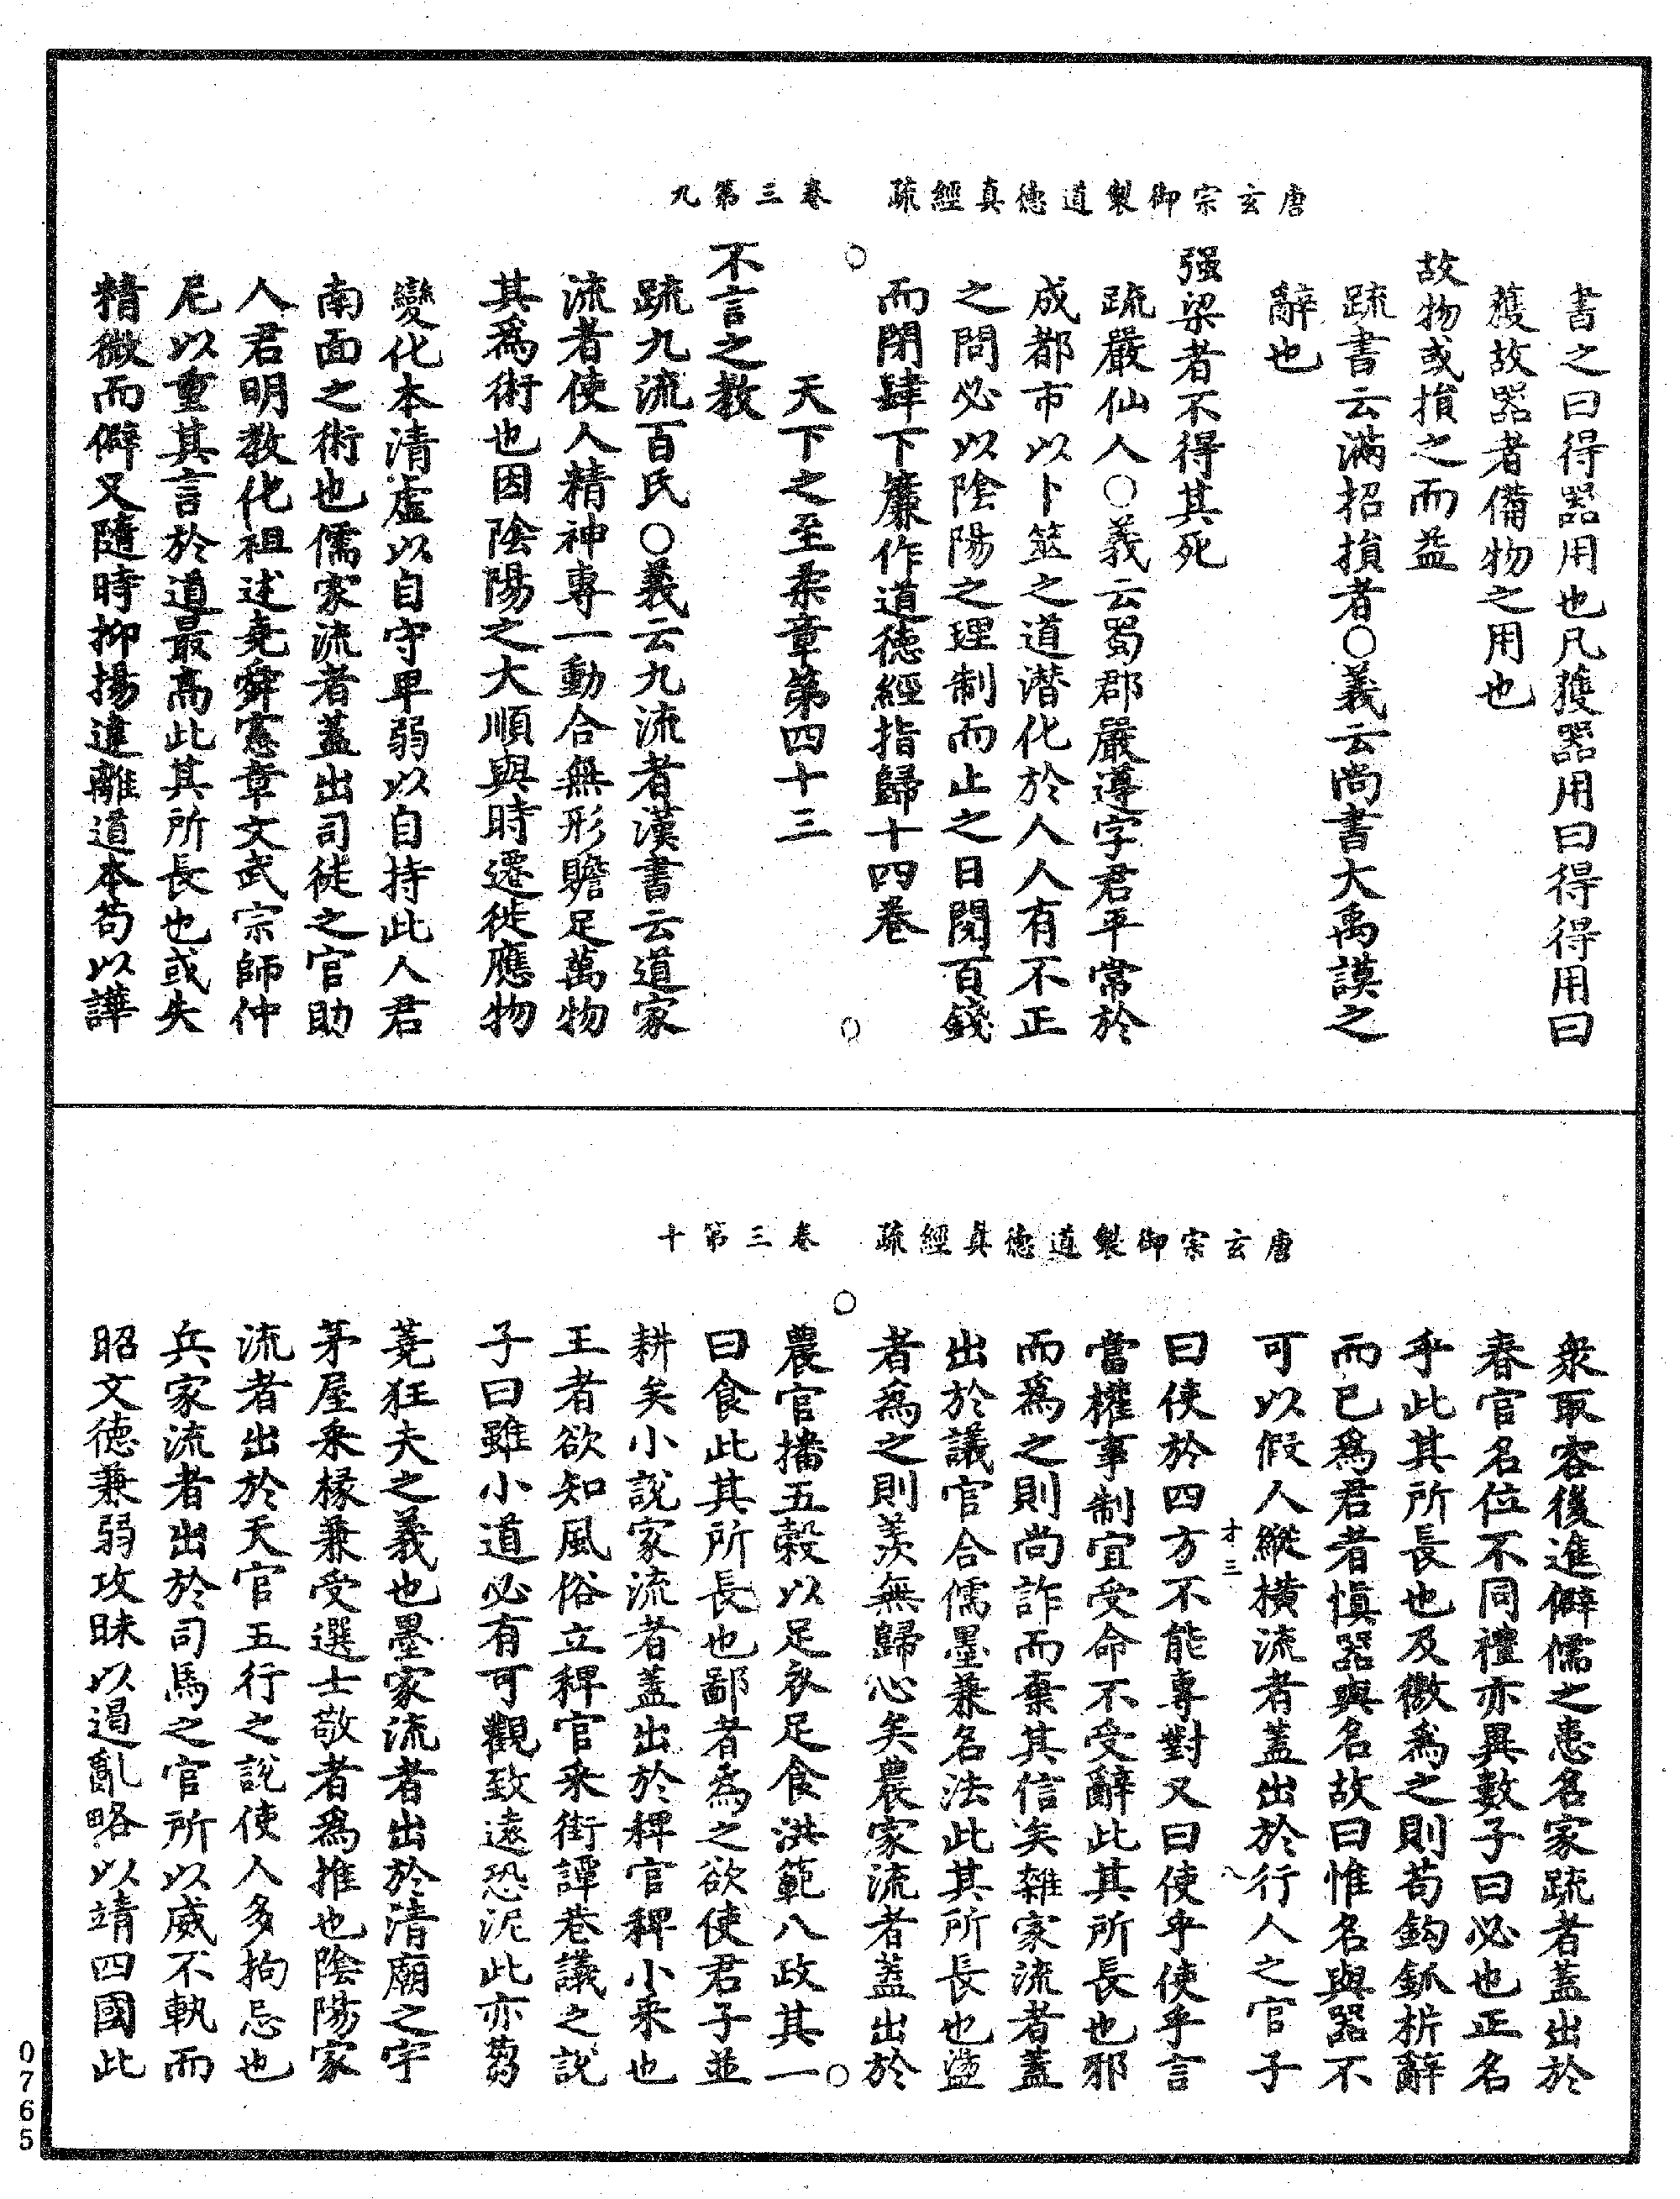 唐玄宗御製道德真經疏　卷三第九
書之曰得器用也凡獲器用曰得得用曰
獲故器者備物之用也
故物或損之而益
疏書云滿招損者○義云尚書大禹謨之
辭也
强梁者不得其死
疏嚴仙人○義云蜀郡嚴遵字君平常於
成都市以卜筮之道潛化於人人有不正
之問必以陰陽之理制而止之日閱百錢
而閉肆下簾作道德經指歸十四卷
天下之至柔章第四十三
不言之教
疏九流百氏○義云九流者漢書云道家
流者使人精神專一動合無形贍足萬物
其爲術也因陰陽之大順與時遷徙應物
變化本清虛以自守卑弱以自持此人君
南面之術也儒家流者蓋出司徒之官助
人君明教化祖述堯舜憲章文武宗師仲
尼以重其言於道最高此其所長也或失
精微而僻又隨時抑揚違離道本苟以譁
唐玄宗御製道德真經疏　卷三第十
衆取容後進僻儒之患名家疏者蓋出於
春官名位不同禮亦異數子曰必也正名
乎此其所長也及徼爲之則苟鈎釽析辭
而已爲君者愼器與名故曰惟名與器不
可以假人縱橫流者蓋出於行人之官子
才三
曰使於四方不能專對又曰使乎使乎言
當權事制宜受命不受辭此其所長也邪
而爲之則尚詐而棄其信矣雜家流者蓋
出於議官合儒墨兼名法此其所長也盪
者爲之則羨無歸心矣農家流者蓋出於
農官播五穀以足衣足食洪範八政其一
曰食此其所長也鄙者爲之欲使君子並
耕矣小說家流者蓋出於稗官稗小釆也
王者欲知風俗立稗官釆街譚巷議之說
子曰雖小道必有可觀致遠恐泥此亦芻
蕘狂夫之義也墨家流者出於清廟之宇
茅屋釆椽兼受選士敬者爲推也陰陽家
流者出於天官五行之說使人多拘忌也
兵家流者出於司馬之官所以威不軌而
昭文德兼弱攻昧以遏亂略以靖四國此
0765